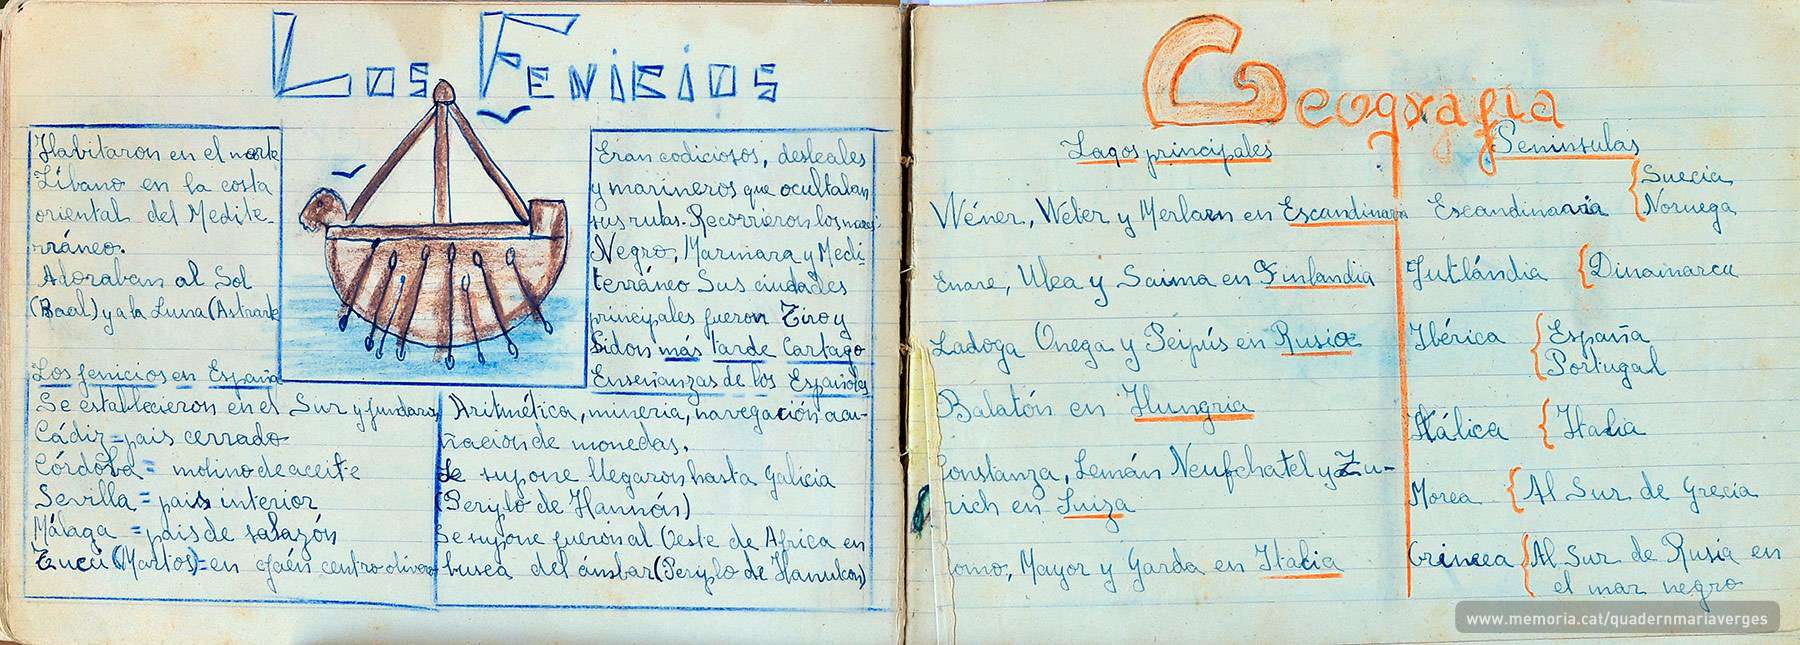 Los Fenicios
Habitaron en el norte
Líbano en la costa
oriental del Medite-
rráneo.
Adoraban al Sol
(Baal) y a la Luna (Astrark
Los fenicios en España
Se establecieron en el Sur y fundaron
Cádiz = pais cerrado
Córdoba = molino de aceite
Sevilla = pais interior
Málaga = pais de salazón
Tucci (Martos) = en Jaén centro olivero
Eran codiciosos, desleales
y marineros que ocultaban
sus rutas. Recorrieron los mares
Negro, Marmara y Medi-
terráneo Sus ciudades
principales fueron Tiro y
Sidon más tarde Cartago
Enseñanzas de los Españoles
Aritmética, mineria, navegación acu-
ñacion de monedas.
Se supone llegaron hasta Galicia
(Periplo de Hannón)
Se supone fueron al Oeste de Africa en
busca del ámbar (Periplo de
Geografia
Lagos principales
Wéner, Weter y Merlarn en Escandinavia
Enare, Ulea y Saima en Finlandia
Ladoga Onega y Peipús en Rusia
Balatón en Hungria
Constanza, Lemán Neufchatel y Zu-
rich en Suiza
Como, Mayor y Garda en Italia
Peninsulas
Escandinavia { Suecia
Noruega
Jutlándia { Dinamarca
Ibérica { España
Portugal
Itálica { Italia
Morea { Al Sur de Grecia
Crimea { Al Sur de Rusia en
el mar negro
www.memoria.cat/quadernmariaverges